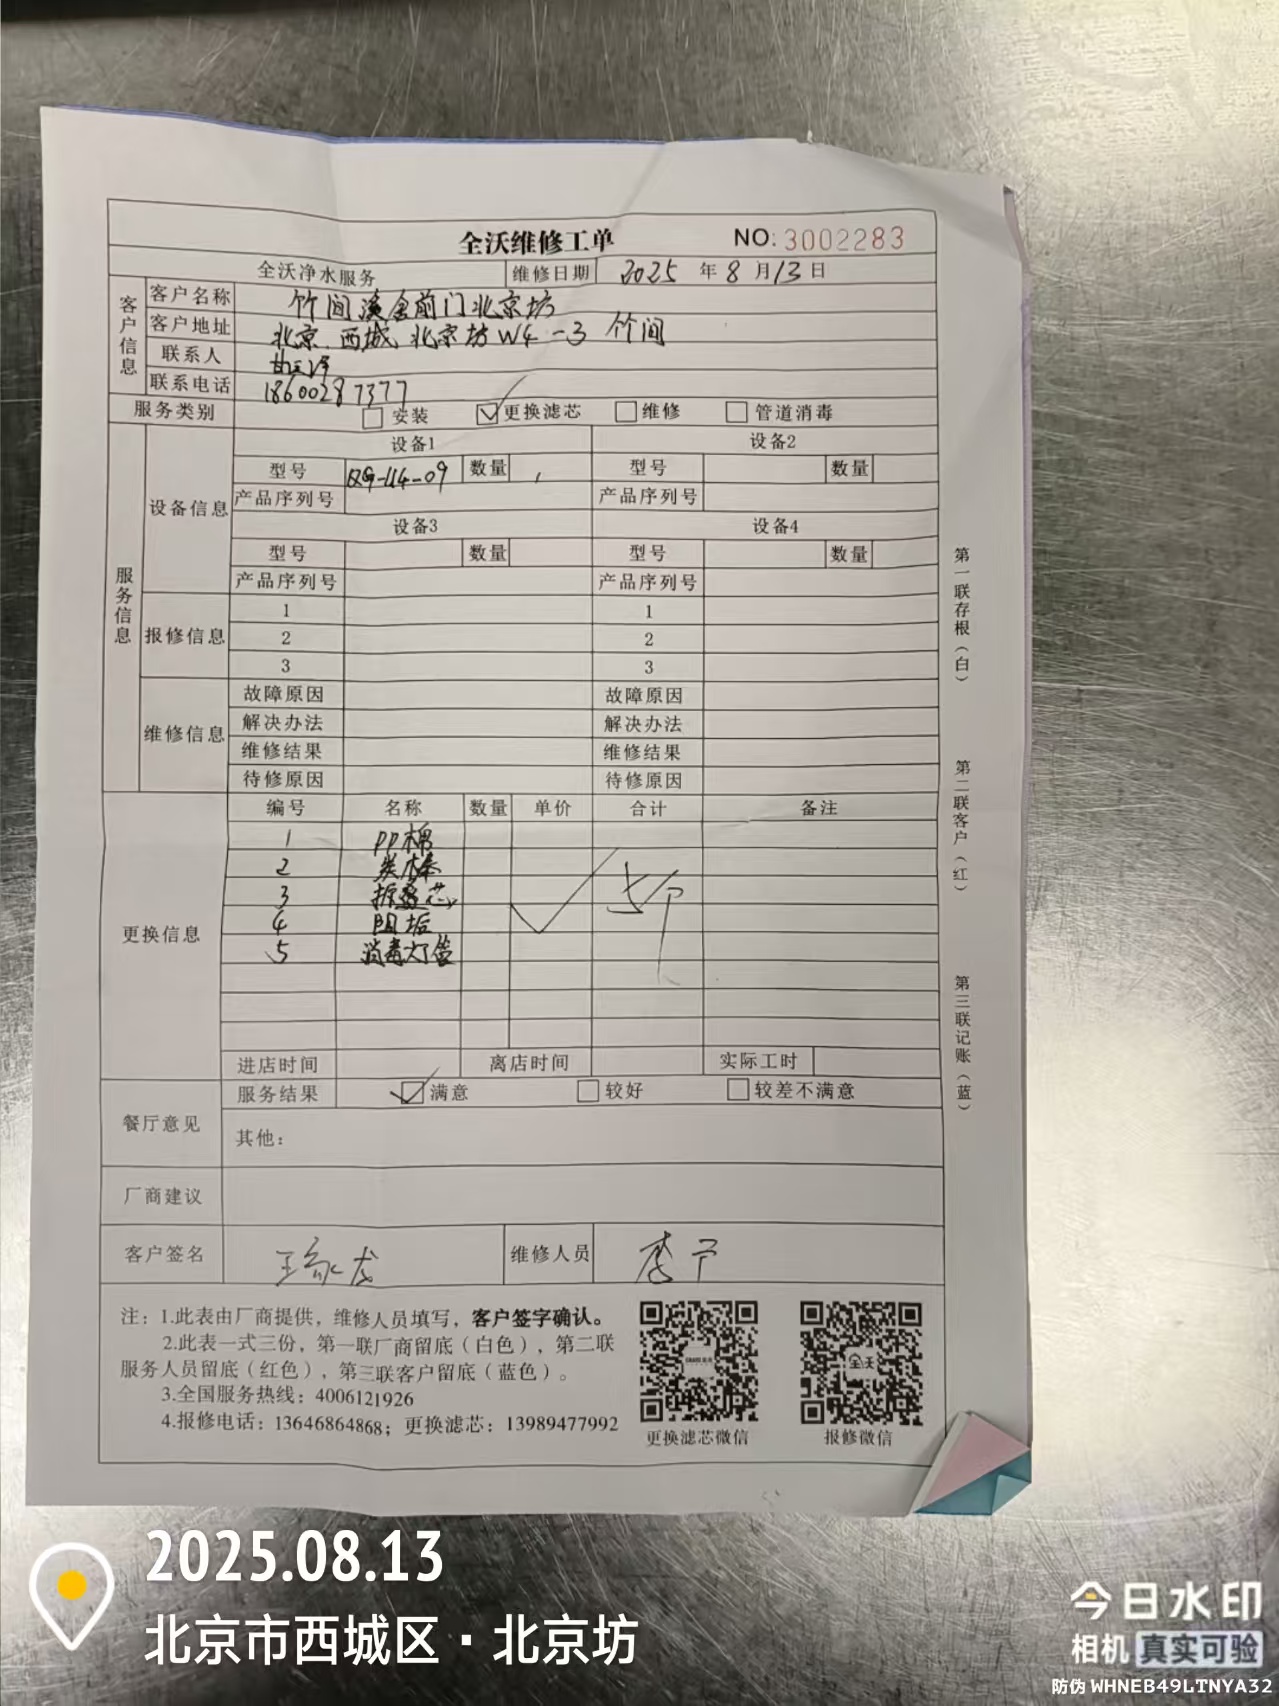 全沃维修工单
NO: 3002283
全沃净水服务 维修日期 2025 年 8 月 13 日
客户信息
客户名称 竹间溪舍前门北京坊
客户地址 北京.西城.北京坊W4-3 竹间
联系人
联系电话 18600287377
服务类别 安装 更换滤芯 维修 管道消毒
服务信息
设备信息
设备1 设备2
型号 数量 型号 数量
产品序列号 产品序列号
设备3 设备4
型号 数量 型号 数量
产品序列号 产品序列号
报修信息
1 1
2 2
3 3
维修信息
故障原因 故障原因
解决办法 解决办法
维修结果 维修结果
待修原因 待修原因
更换信息
编号 名称 数量 单价 合计 备注
1 PP棉
2 炭棒
3 折叠芯
4 阻垢
5 消毒灯管
进店时间 离店时间 实际工时
餐厅意见
服务结果 满意 较好 较差不满意
其他：
厂商建议
客户签名 维修人员
注：1.此表由厂商提供，维修人员填写，客户签字确认。
2.此表一式三份，第一联厂商留底（白色），第二联
服务人员留底（红色），第三联客户留底（蓝色）。
3.全国服务热线：4006121926
4.报修电话：13646864868；更换滤芯：13989477992
更换滤芯微信 报修微信
第一联存根（白）
第二联客户（红）
第三联记账（蓝）
2025.08.13
北京市西城区·北京坊
今日水印
相机 真实可验
防伪 WHNEB49LTNYA32